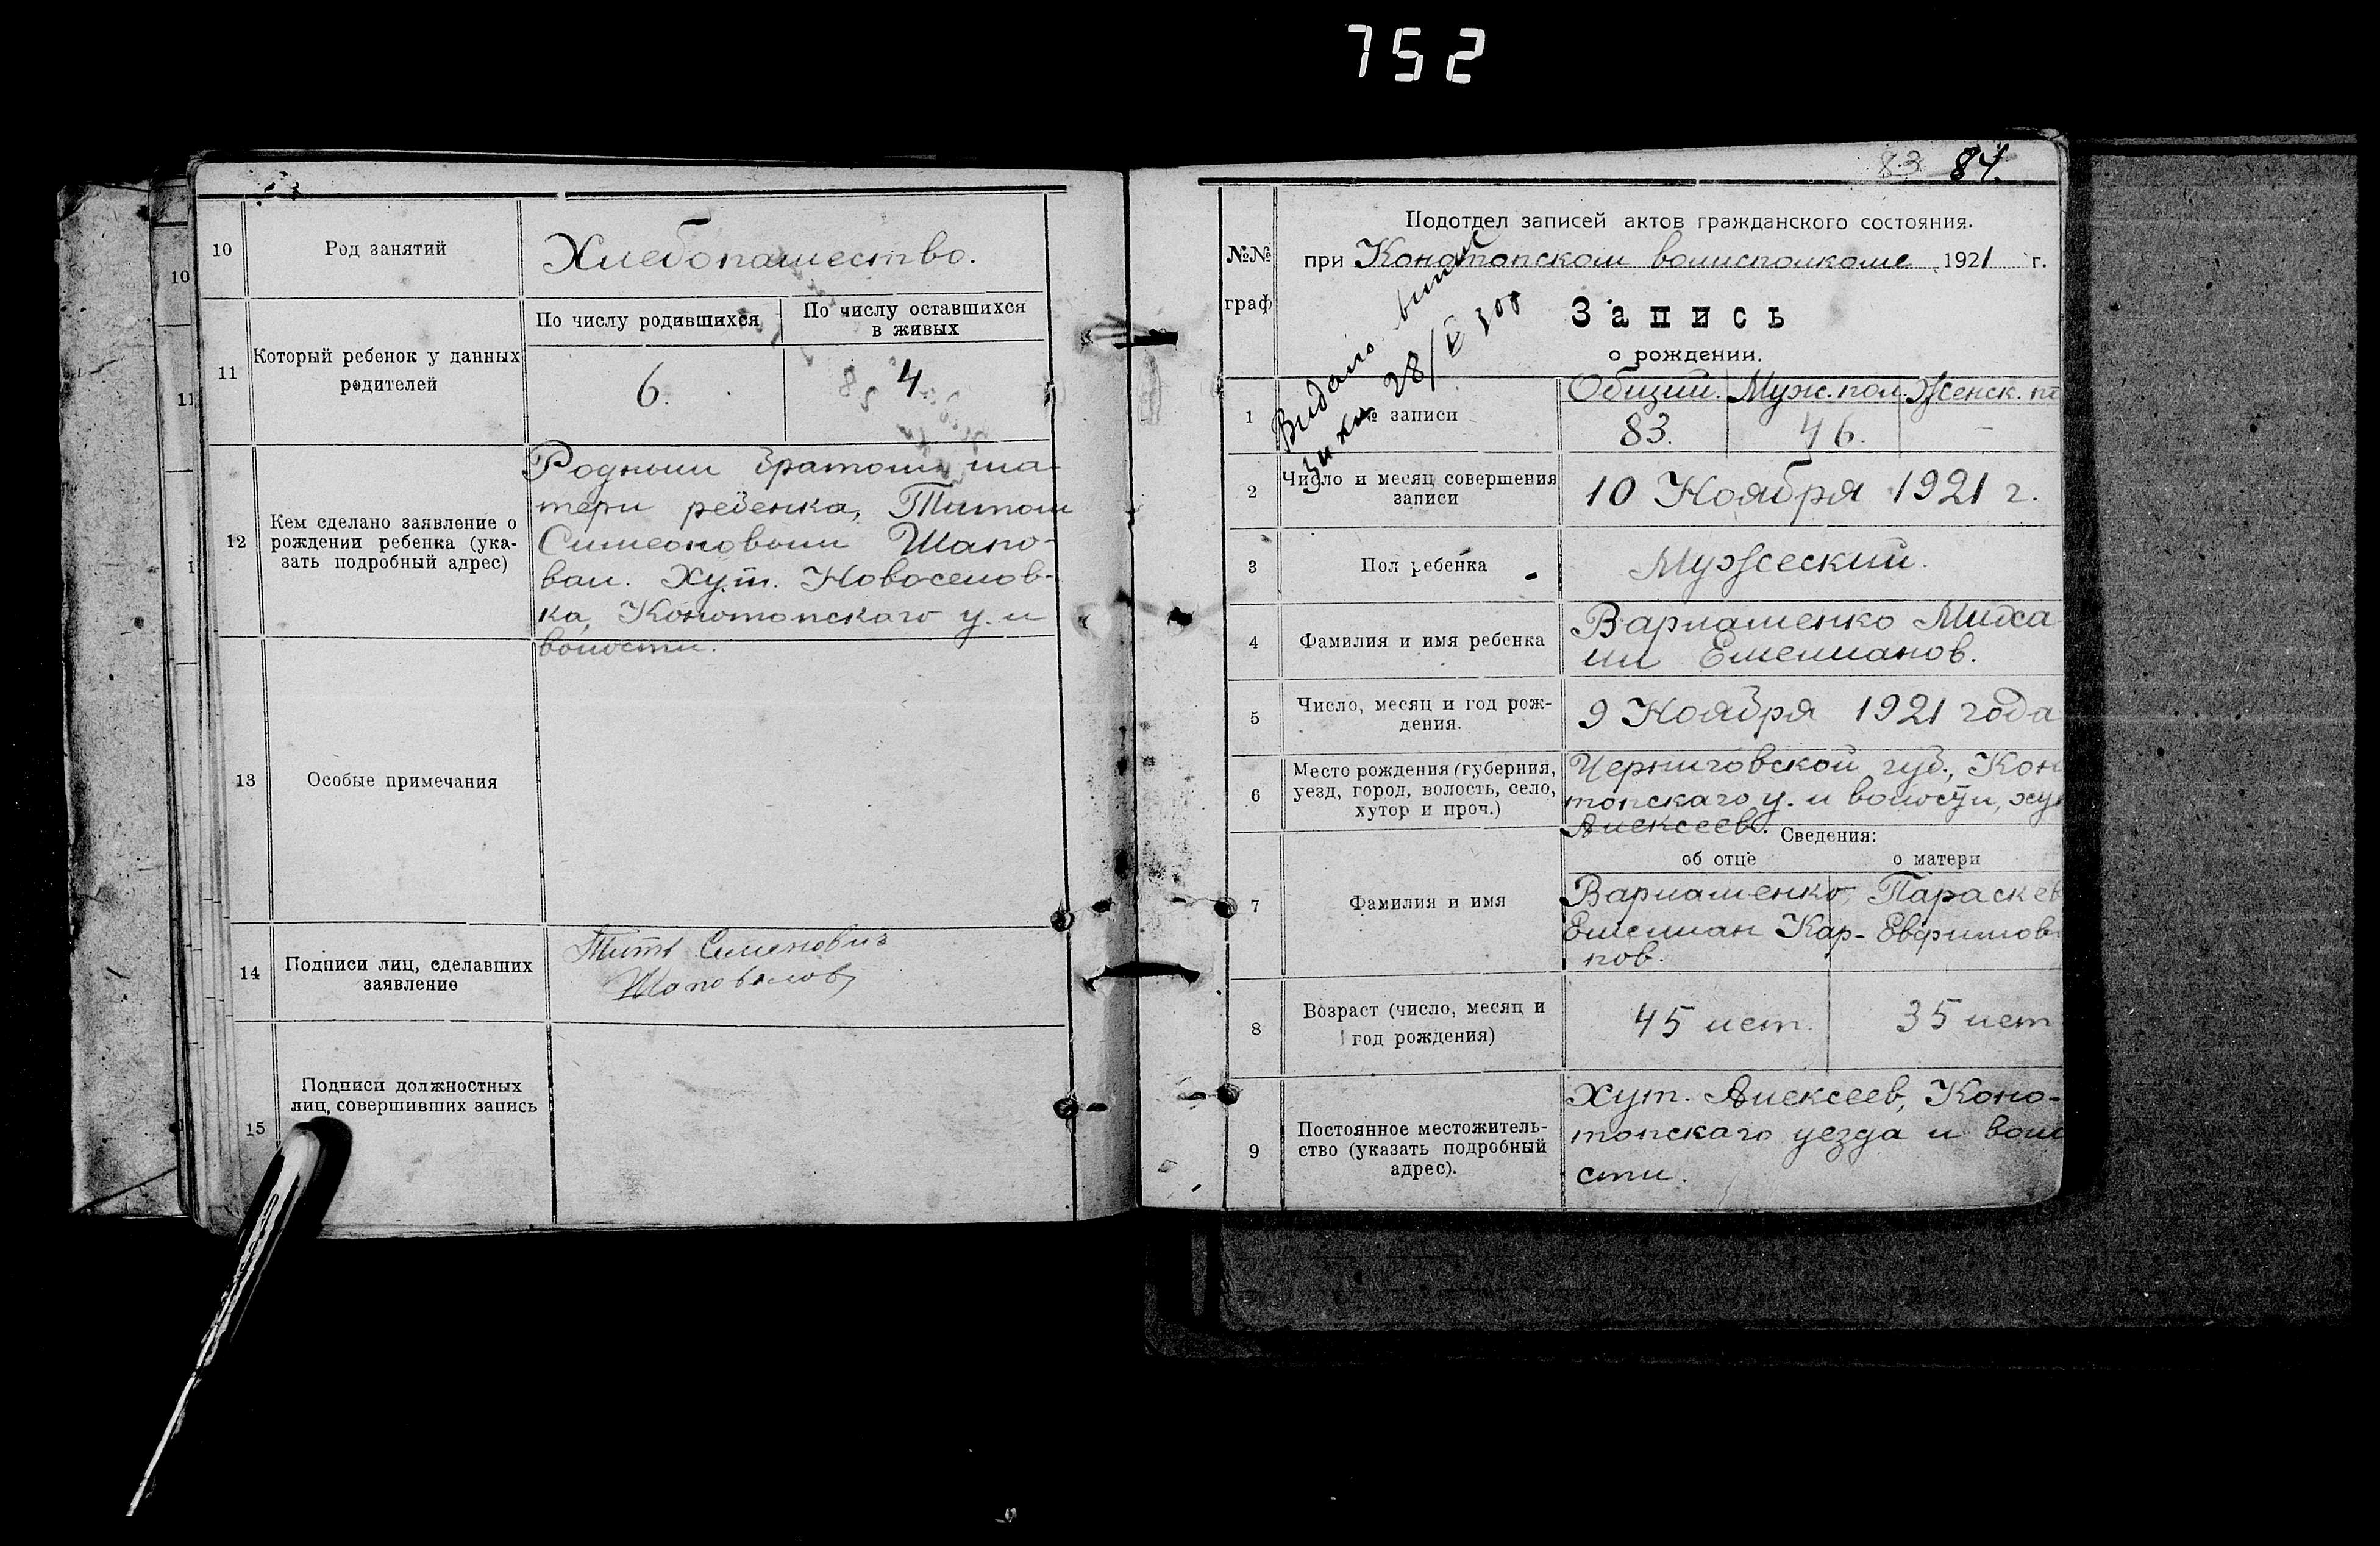 752
10
Род занятий
Хлебопашество.
11
Который ребенок у данных
родителей
По числу родившихся
По числу оставшихся
в живых
6.
4
12
Кем сделано заявление о
рождении ребенка (ука-
зать подробный адрес)
Родным братом ма-
тери ребенка, Титом
Симеоновым Шапо-
вал. Хут. Новоселов-
ка, Конотопскаго у. и
волости.
13
Особые примечания
14
Подписи лиц, сделавших
заявление
Титъ Семенович
Шаповалов
15
Подписи должностных
лиц, совершивших запись
10
11
1
83 84.
№№
граф
Подотдел записей актов гражданского состояния.
при Конотопском волисполкоме 1921 г.
Запись
о рождении.
Видано
28/V 300
1
№ записи
Общий. Муж. пол. Женск. по
83. 46. -
2
Число и месяц совершения
записи
10 Ноября 1921 г.
3
Пол ребенка
Мужеский.
4
Фамилия и имя ребенка
Варлашенко Миха
ил Емелианов.
5
Число, месяц и год рож-
дения.
9 Ноября 1921 года
6
Место рождения (губерния,
уезд, город, волость, село,
хутор и проч.)
Черниговской губ., Коно
топскаго у. и волости, хут
Алексеев.
Сведения:
об отце
о матери
7
Фамилия и имя
Варлашенко,
Емелиан Кар-
пов.
Параскев
Евфимов
8
Возраст (число, месяц и
год рождения)
45 лет.
35 лет
9
Постоянное местожитель-
ство (указать подробный
адрес).
Хут. Алексеев, Коно-
топскаго уезда и воло
сти.